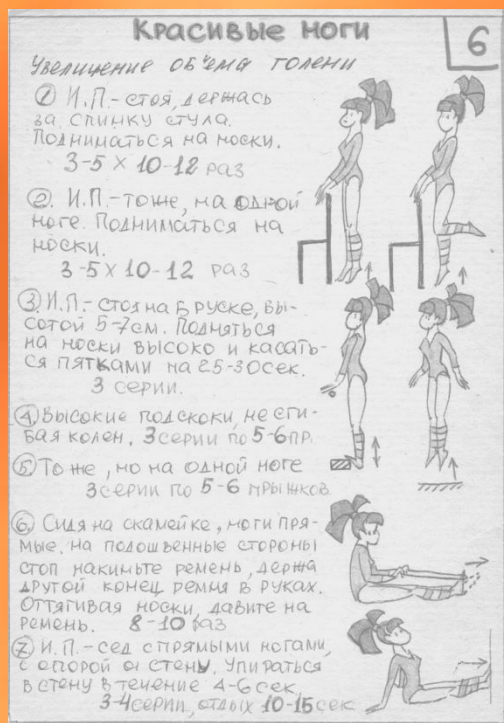 Красивые ноги
6
Увеличение объёма голени
① И.П.-стоя, держась
за спинку стула.
Подниматься на носки.
3-5 × 10-12 раз
②. И.П.-тоже, на одной
ноге. Подниматься на
носки.
3-5 × 10-12 раз
③. И.П.- стоя на бруске, вы-
сотой 5-7см. Подняться
на носки высоко и касать-
ся пятками на 25-30сек.
3 серии.
④. Высокие подскоки, не сги-
бая колен. 3 серии по 5-6 пр.
⑤. То же, но на одной ноге
3 серии по 5-6 прыжков
⑥. Сидя на скамейке, ноги пря-
мые, на подошвенные стороны
стоп накиньте ремень, держа
другой конец ремня в руках.
Оттягивая носки, давите на
ремень. 8-10 раз
⑦. И.П.- сед с прямыми ногами,
с опорой о стену. Упираться
в стену в течение 4-6 сек.
3-4 серии, отдых 10-15 сек